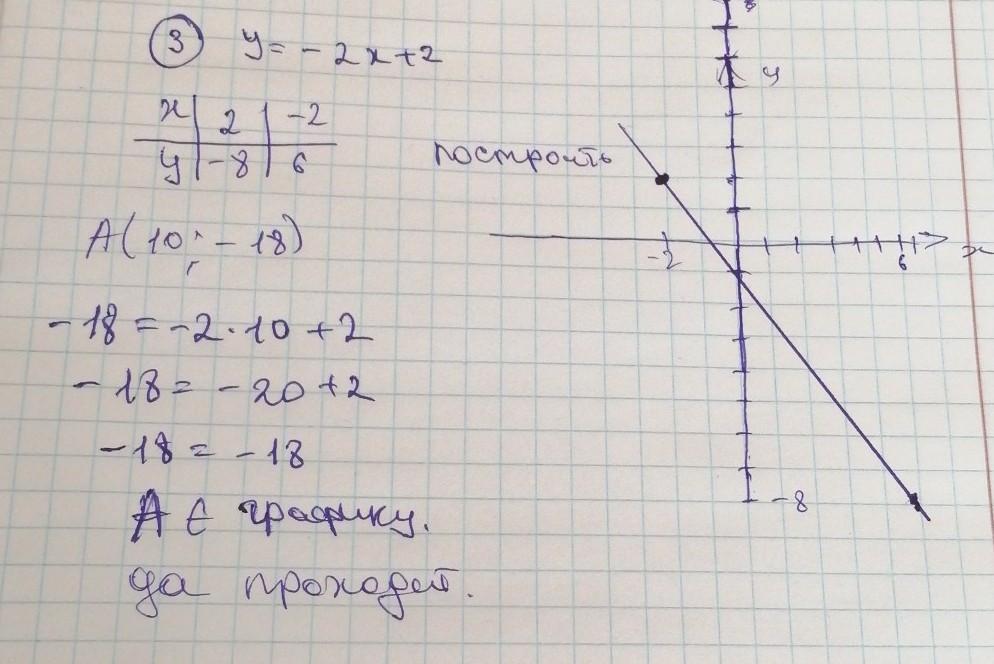 ③ y = -2x+2
x | 2 | -2
y | -8 | 6
построить
A(10; -18)
-18 = -2·10+2
-18 = -20+2
-18 = -18
A ∈ графику.
да проходит.
y
x
-2
6
-8